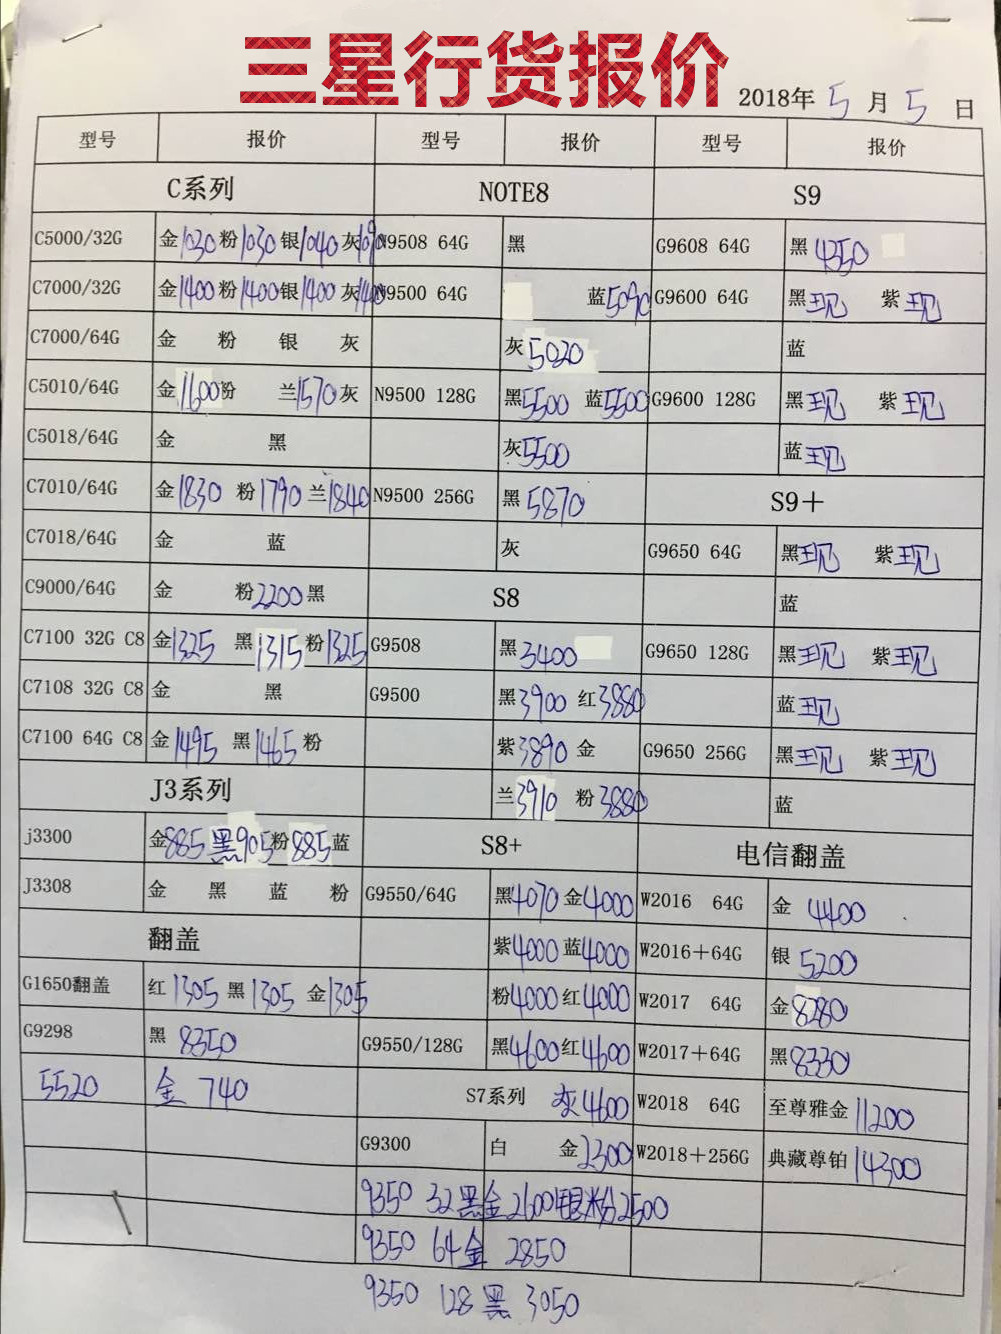 三星行货报价
2018年 5 月 5 日
型号 报价 型号 报价 型号 报价
C系列 NOTE8 S9
C5000/32G 金1030 粉1030 银1040 灰1090 N9508 64G 黑 G9608 64G 黑 4350
C7000/32G 金1400 粉1400 银1400 灰1400 N9500 64G 蓝5090 G9600 64G 黑现 紫现
C7000/64G 金 粉 银 灰 灰5020 蓝
C5010/64G 金1600 粉 兰1570 灰 N9500 128G 黑5500 蓝5500 G9600 128G 黑现 紫现
C5018/64G 金 黑 灰5500 蓝现
C7010/64G 金1830 粉1790 兰1840 N9500 256G 黑 5870 S9＋
C7018/64G 金 蓝 灰 G9650 64G 黑现 紫现
C9000/64G 金 粉2200 黑 S8 蓝
C7100 32G C8 金1325 黑1315 粉1325 G9508 黑3400 G9650 128G 黑现 紫现
C7108 32G C8 金 黑 G9500 黑3900 红3880 蓝现
C7100 64G C8 金1495 黑1465 粉 紫3890 金 G9650 256G 黑现 紫现
J3系列 兰3910 粉3880 蓝
j3300 金885 黑905 粉885 蓝 S8+ 电信翻盖
J3308 金 黑 蓝 粉 G9550/64G 黑4070 金4000 W2016 64G 金 4400
翻盖 紫4000 蓝4000 W2016＋64G 银 5200
G1650翻盖 红1305 黑1305 金1305 粉4000 红4000 W2017 64G 金8280
G9298 黑 8350 G9550/128G 黑4600 红4600 W2017＋64G 黑8330
5520 金 740 S7系列 灰4600 W2018 64G 至尊雅金 11200
G9300 白 金2300 W2018＋256G 典藏尊铂 14300
9350 32 黑金2600 银粉2500
9350 64 金 2850
9350 128 黑 3050